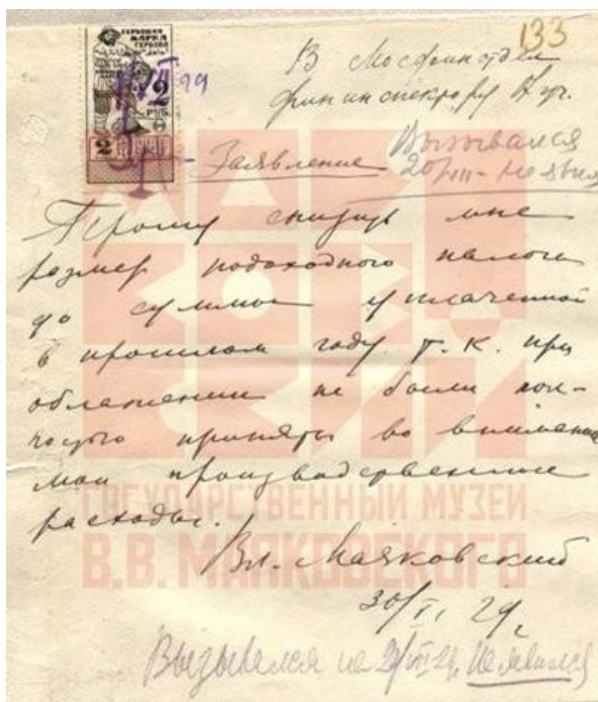 133
ГЕРБОВАЯ
МАРКА
2
РУБ.
2
В Мосфинотдел
фининспектору уч.
Вызывался
20/VII - не явил
Заявление
Прошу снизить мне
размер подоходного налога
до суммы уплаченной
в прошлом году. т.к. при
обложении не были пол-
ностью приняты во внимание
мои производственные
расходы.
Вл. Маяковский
30/VI 29.
Вызывался на 2/VII 29. Не явился
ГОСУДАРСТВЕННЫЙ МУЗЕЙ
В.В. МАЯКОВСКОГО